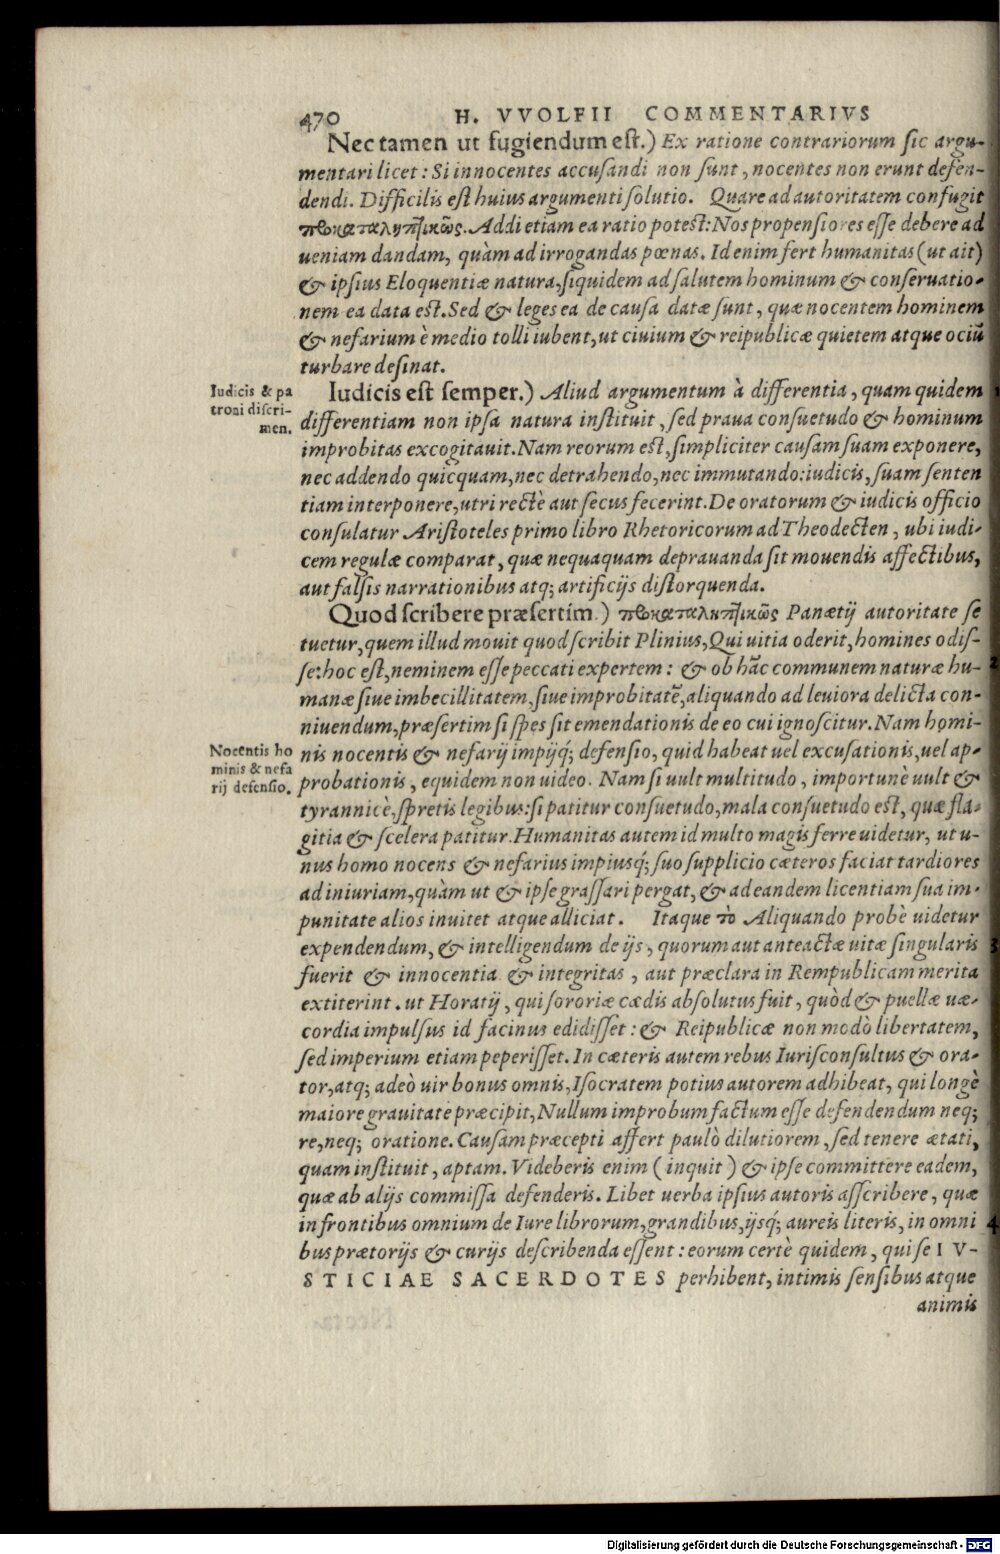 470 H. VVOLFII COMMENTARIVS
Nec tamen ut fugiendum est.) Ex ratione contrariorum sic argu-
mentari licet: Si innocentes accusandi non sunt, nocentes non erunt defen-
dendi. Difficilis est huius argumenti solutio. Quare ad autoritatem confugit
προκαταληπτικῶς. Addi etiam ea ratio potest: Nos propensiores esse debere ad
ueniam dandam, quàm ad irrogandas pœnas. Id enim fert humanitas (ut ait)
& ipsius Eloquentiæ natura, siquidem ad salutem hominum & conseruatio-
nem ea data est. Sed & leges ea de causa datæ sunt, quæ nocentem hominem
& nefarium è medio tolli iubent, ut ciuium & reipublicæ quietem atque ociū
turbare desinat.
Iudicis & pa
troni discri-
men.
Iudicis est semper.) Aliud argumentum à differentia, quam quidem
differentiam non ipsa natura instituit, sed praua consuetudo & hominum
improbitas excogitauit. Nam reorum est, simpliciter causam suam exponere,
nec addendo quicquam, nec detrahendo, nec immutando: iudicis, suam senten
tiam interponere, utri rectè aut secus fecerint. De oratorum & iudicis officio
consulatur Aristoteles primo libro Rhetoricorum ad Theodecten, ubi iudi-
cem regulæ comparat, quæ nequaquam deprauanda sit mouendis affectibus,
aut falsis narrationibus atq; artificijs distorquenda.
Quod scribere præsertim.) προκαταληπτικῶς Panætij autoritate se
tuetur, quem illud mouit quod scribit Plinius, Qui uitia oderit, homines odis-
se: hoc est, neminem esse peccati expertem: & ob hāc communem naturæ hu-
manæ siue imbecillitatem, siue improbitatē, aliquando ad leuiora delicta con-
niuendum, præsertim si spes sit emendationis de eo cui ignoscitur. Nam homi-
Nocentis ho
minis & nefa
rij defensio.
nis nocentis & nefarij impijq́; defensio, quid habeat uel excusationis, uel ap-
probationis, equidem non uideo. Nam si uult multitudo, importunè uult &
tyrannicè, spretis legibus: si patitur consuetudo, mala consuetudo est, quæ fla-
gitia & scelera patitur. Humanitas autem id multo magis ferre uidetur, ut u-
nus homo nocens & nefarius impiusq́; suo supplicio cæteros faciat tardiores
ad iniuriam, quàm ut & ipse grassari pergat, & ad eandem licentiam sua im-
punitate alios inuitet atque alliciat. Itaque τὸ Aliquando probè uidetur
expendendum, & intelligendum de ijs, quorum aut anteactæ uitæ singularis
fuerit & innocentia & integritas, aut præclara in Rempublicam merita
extiterint. ut Horatij, qui sororiæ cædis absolutus fuit, quòd & puellæ uæ-
cordia impulsus id facinus edidisset: & Reipublicæ non modò libertatem,
sed imperium etiam peperisset. In cæteris autem rebus Iurisconsultus & ora-
tor, atq; adeò uir bonus omnis, Isocratem potius autorem adhibeat, qui longè
maiore grauitate præcipit, Nullum improbum factum esse defendendum neq;
re, neq; oratione. Causam præcepti affert paulò dilutiorem, sed tenere ætati,
quam instituit, aptam. Videberis enim (inquit) & ipse committere eadem,
quæ ab alijs commissa defenderis. Libet uerba ipsius autoris asscribere, quæ
in frontibus omnium de Iure librorum, grandibus, ijsq́; aureis literis, in omni
bus prætorijs & curijs describenda essent: eorum certè quidem, qui se IV-
STICIAE SACERDOTES perhibent, intimis sensibus atque
animis
2
3
4
Digitalisierung gefördert durch die Deutsche Forschungsgemeinschaft - DFG